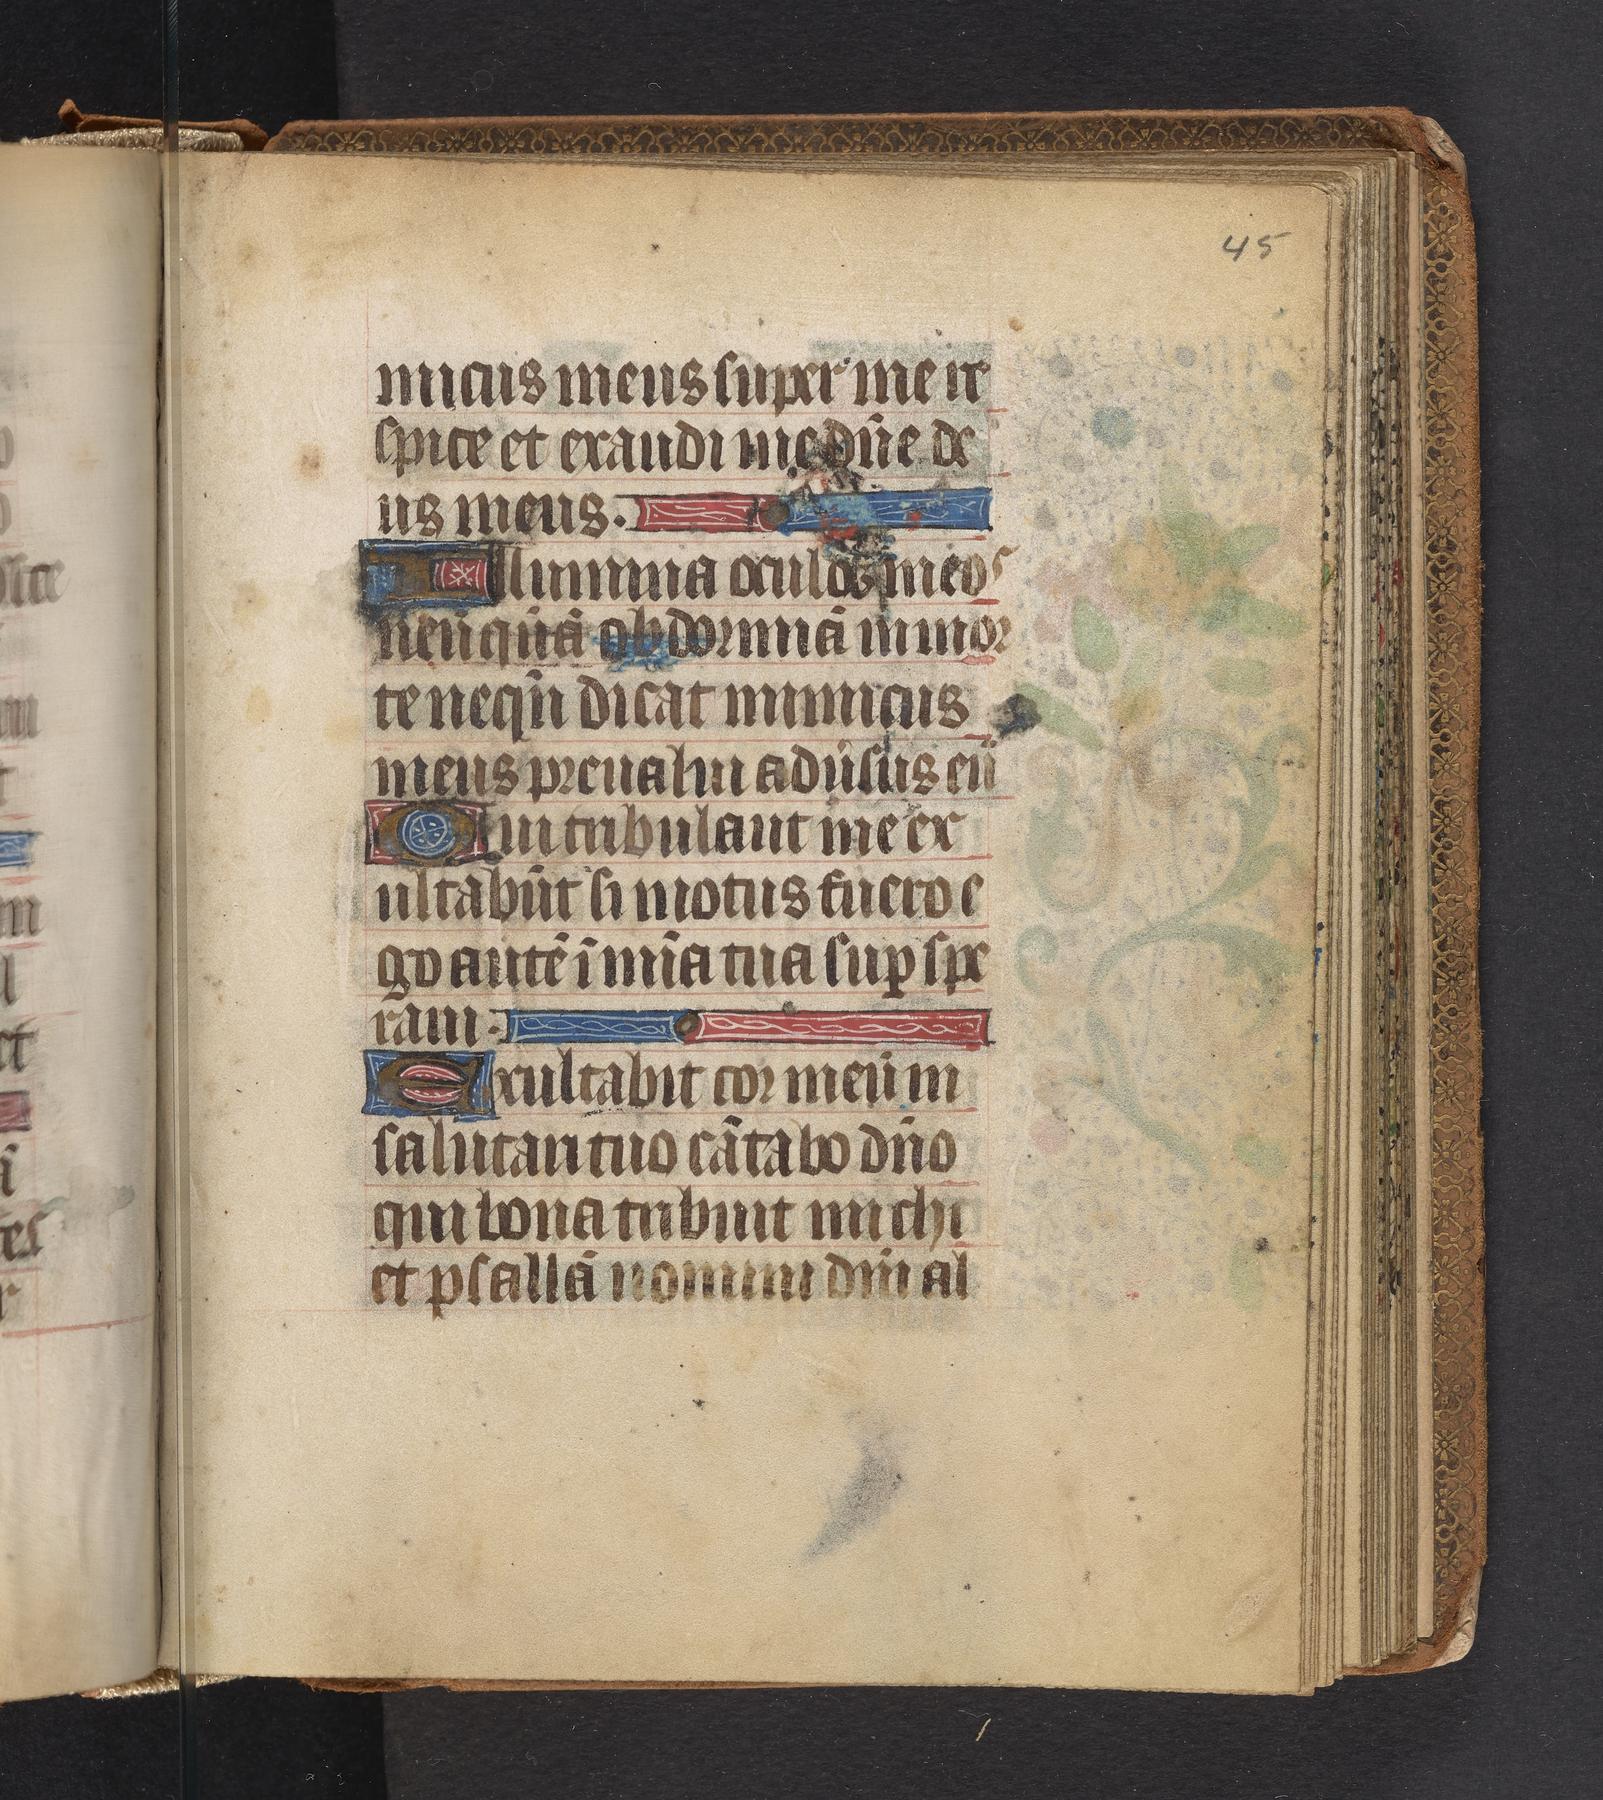 45
micus meus super me re
spice et exaudi me dn̄e de
us meus.
Illumina oculos meos
neūquā obdormiā in mor
te neqn̄ dicat inimicus
meus preualui adūsus eū
Qui tribulant me ex
ultabūt si motus fuero e
go autē ī mīa tua sup spe
raui.
Exultabit cor meū in
salutari tuo cātabo dn̄o
qui bona tribuit michi
et psallā nomini dn̄i al